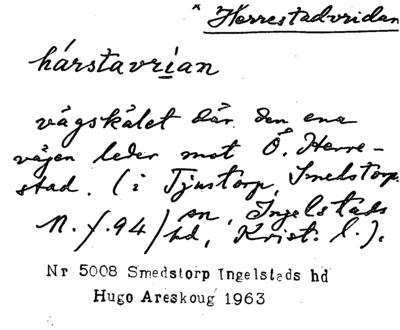 * Herrestadvridan
hárstavrian
vägskälet där den ena
vägen leder mot Ö. Herre-
stad. (i Tjustorp, Smedstorps
M. f. 94) sn, Ingelstads
hd, Krist. l.).
Nr 5008 Smedstorp Ingelstads hd
Hugo Areskoug 1963